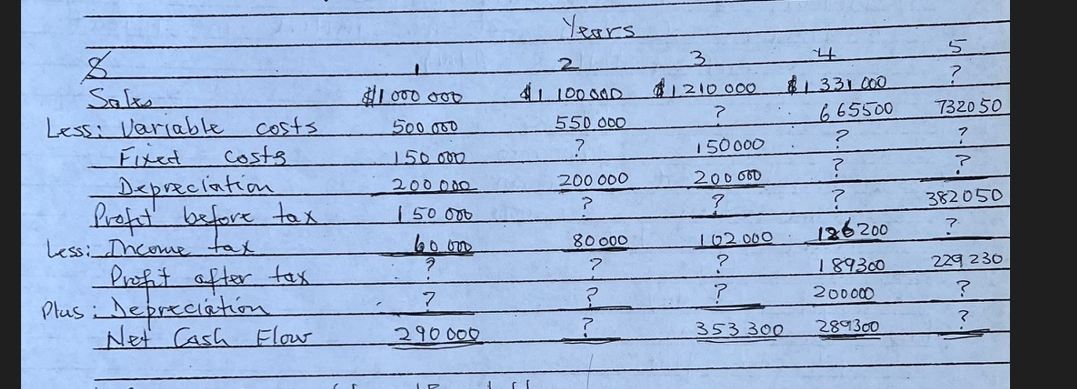 Years
$ 1 2 3 4 5
Sales $1 000 000 $1 100 000 $1 210 000 $1 331 000 ?
Less: Variable costs 500 000 550 000 ? 665500 732050
Fixed costs 150 000 ? 150000 ? ?
Depreciation 200 000 200 000 200 000 ? ?
Profit before tax 150 000 ? ? ? 382050
Less: Income tax 60 000 80000 102 000 126200 ?
Profit after tax ? ? ? 189300 229230
Plus: Depreciation ? ? ? 200000 ?
Net Cash Flow 290 000 ? 353 300 289300 ?